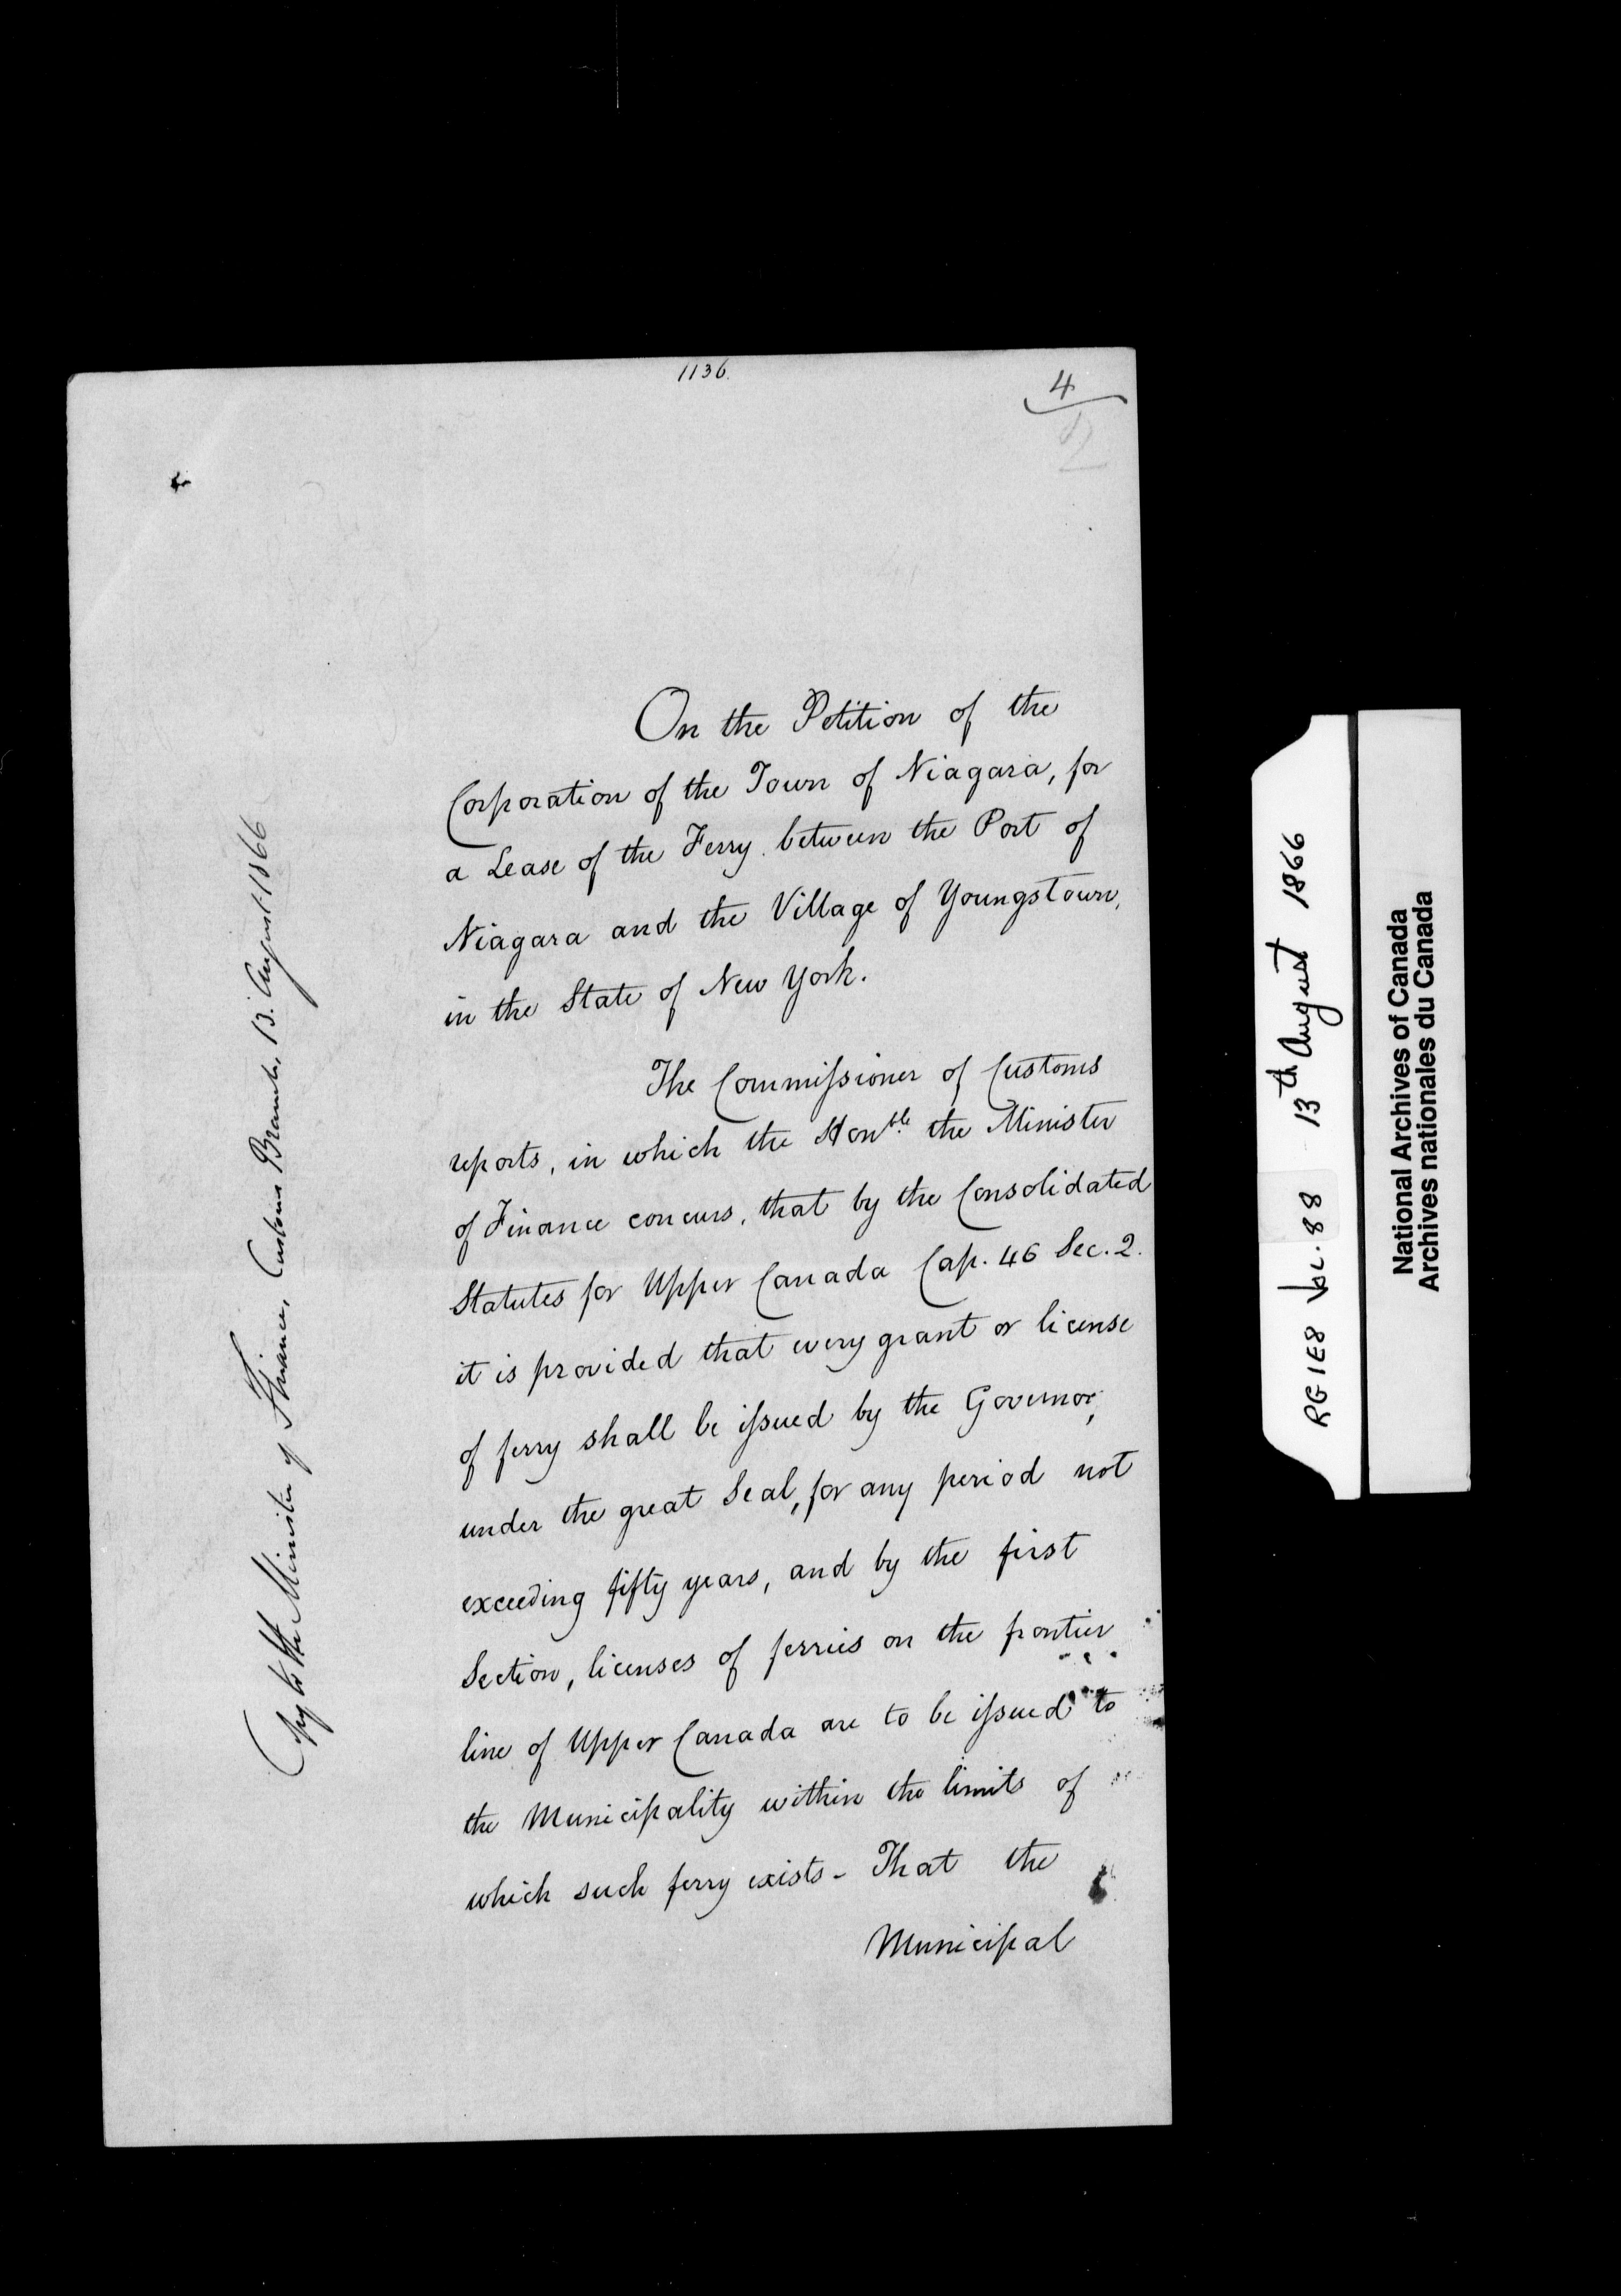 1136.
4
2
On the Petition of the
Corporation of the Town of Niagara, for
a Lease of the Ferry between the Port of
Niagara and the Village of Youngstown,
in the State of New York.
The Commissioner of Customs
reports, in which the Honble. the Minister
of Finance concurs, that by the Consolidated
Statutes for Upper Canada Cap. 46 Sec. 2.
it is provided that every grant or license
of ferry shall be issued by the Governor,
under the great Seal, for any period not
exceeding fifty years, and by the first
Section, licenses of ferries on the frontier
line of Upper Canada are to be issued to
the Municipality within the limits of
which such ferry exists - That the
Municipal
Copy to the Minister of Finance, Customs Branch, 13. August 1866
RG 1E8 Vol. 88 13th August 1866
National Archives of Canada
Archives nationales du Canada